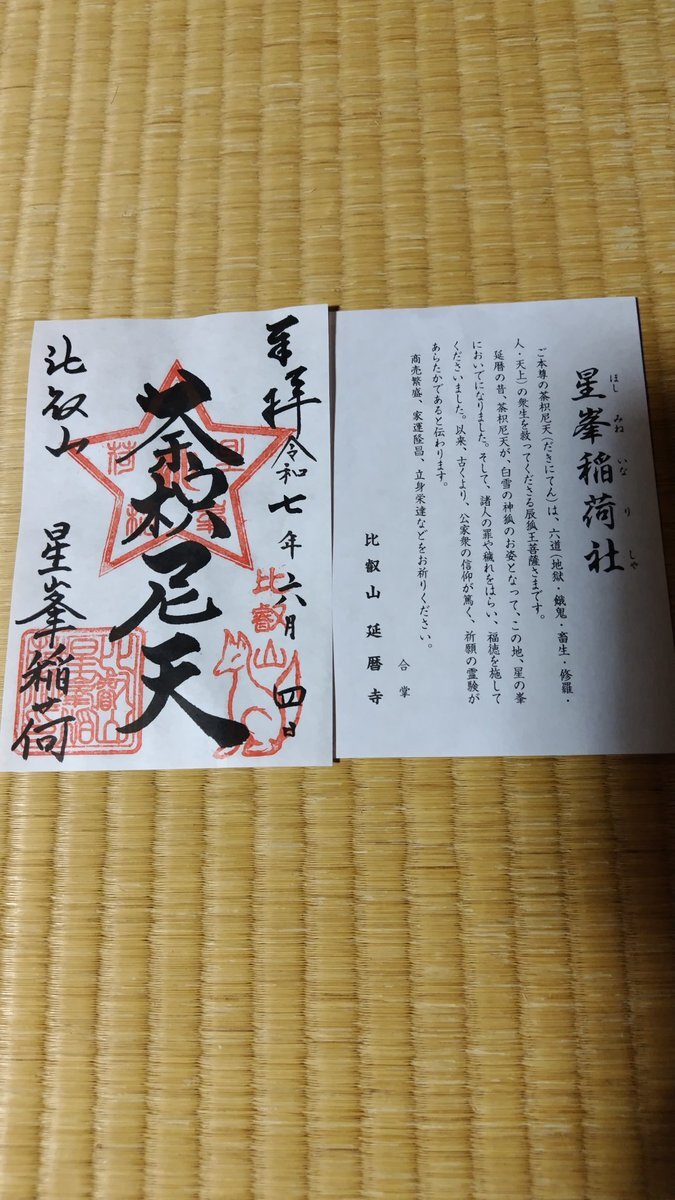 星峯稲荷社
ほしみねいなりしゃ
ご本尊の茶枳尼天（だきにてん）は、六道（地獄・餓鬼・畜生・修羅・
人・天上）の衆生を救ってくださる辰狐王菩薩さまです。
延暦の昔、茶枳尼天が、白雪の神狐のお姿となって、この地、星の峯
においでになりました。そして、諸人の罪や穢れをはらい、福徳を施して
くださいました。以来、古くより、公家衆の信仰が篤く、祈願の霊験が
あらたかであると伝わります。
商売繁盛、家運隆昌、立身栄達などをお祈りください。
合掌
比叡山延暦寺
奉拝 令和七年六月四日
比叡山
茶枳尼天
比叡山 星峯稲荷